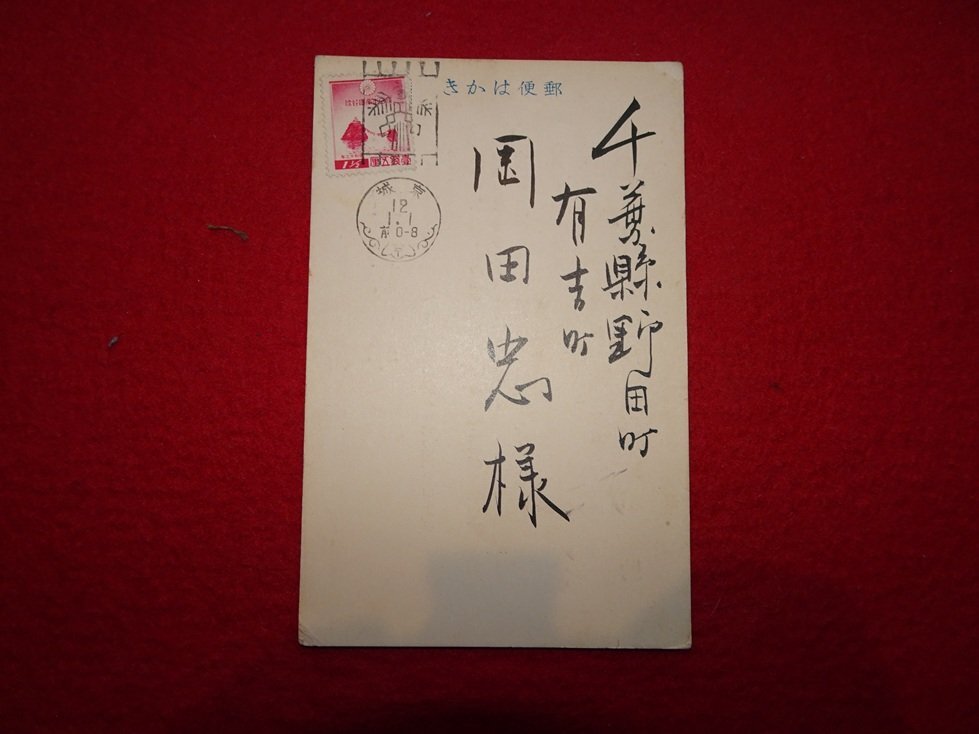 郵便はかき
千葉縣野田町
有吉町
岡田忠様
1½
京城
12
1.1
前0-8